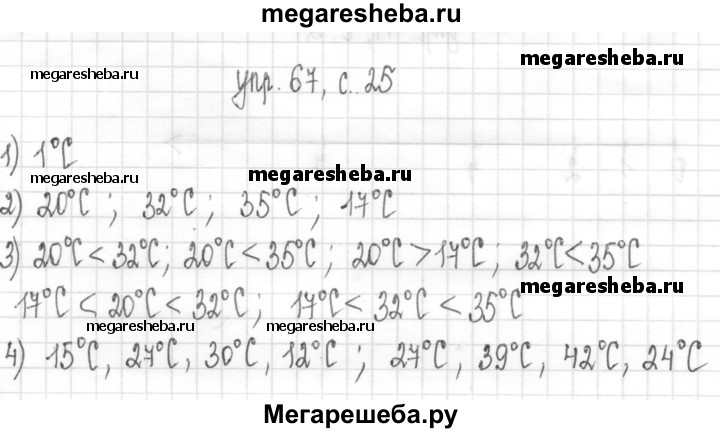 megaresheba.ru
megaresheba.ru
megaresheba.ru
упр. 67, с. 25
1) 1°C
megaresheba.ru
megaresheba.ru
2) 20°C ; 32°C ; 35°C ; 17°C
3) 20°C < 32°C; 20°C < 35°C; 20°C > 17°C; 32°C < 35°C
megaresheba.ru
17°C < 20°C < 32°C; 17°C < 32°C < 35°C
megaresheba.ru
megaresheba.ru
4) 15°C, 27°C, 30°C, 12°C ; 27°C, 39°C, 42°C, 24°C
Мегарешеба.ру